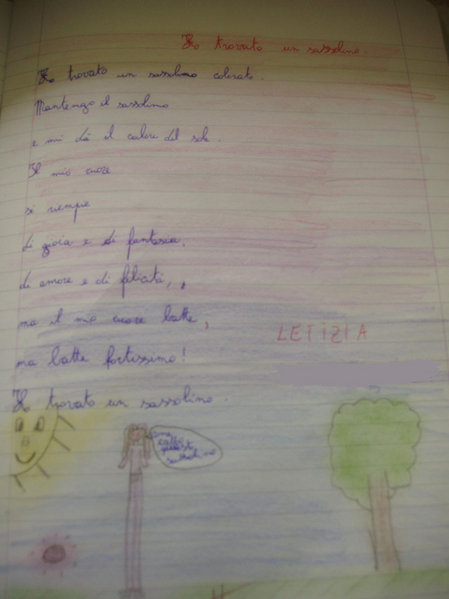 Ho trovato un sassolino.
Ho trovato un sassolino colorato.
Mantengo il sassolino
e mi dà il calore del sole.
Il mio cuore
si riempe
di gioia e di fantasia,
di amore e di felicità,
ma il mio cuore batte,
LETIZIA
ma batte fortissimo!
Ho trovato un sassolino.